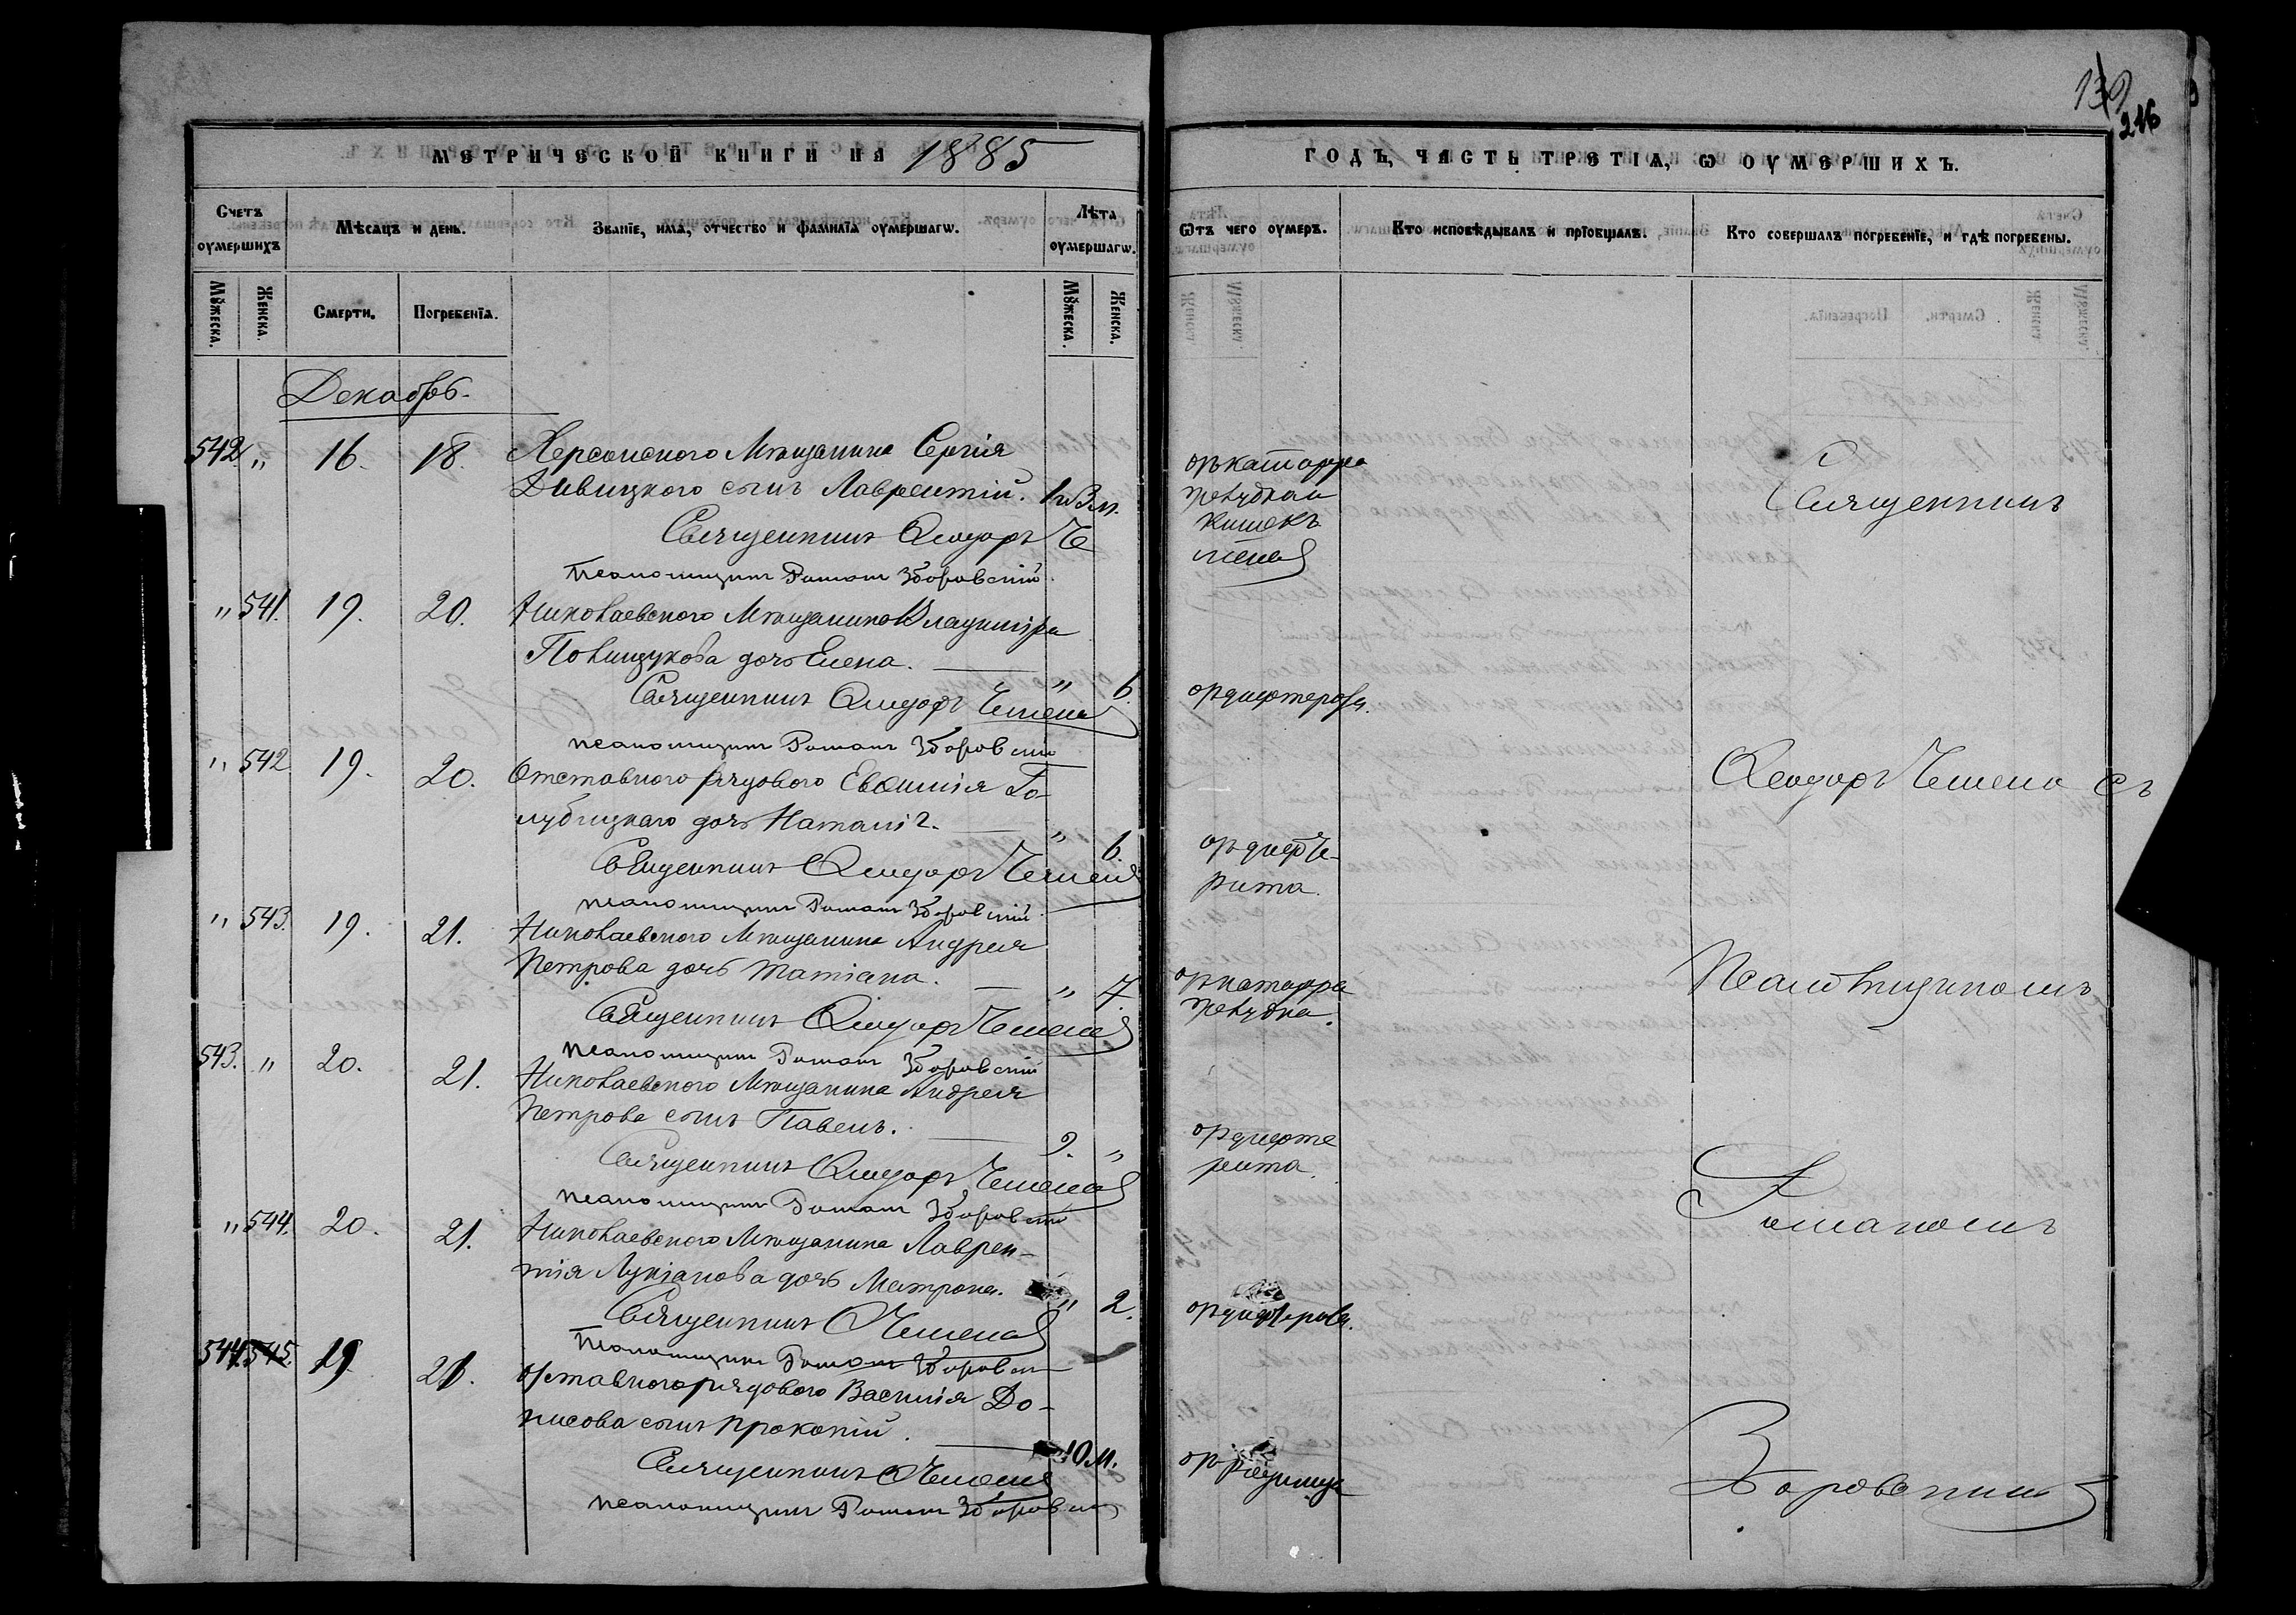 139
216
МЕТРИЧЕСКОЙ КНИГИ НА 1885
ГОДЪ, ЧАСТЬ ТРЕТІѦ, Ѡ ОУМЕРШИХЪ.
Счетъ оумершихъ
Мѣсяцъ и день.
Званіе, имѧ, отчество и фамиліѧ оумершагѡ.
Лѣта оумершагѡ.
Ѿтъ чего оумеръ.
Кто исповѣдывалъ и пріобщалъ.
Кто совершалъ погребеніе, и гдѣ погребены.
Мꙋжеска.
Женска.
Смерти.
Погребеніѧ.
Мꙋжеска.
Женска.
Декабрь.
542. " 16. 18. Херсонского Мѣщанина Сергія
Дивицкого сынъ Лаврентій. 1 и 3 м.
отъ катарра
желудка и
кишекъ
Священникъ Ѳеодоръ
псаломщикъ Романъ Зборовскій
" 541. 19. 20. Николаевского Мѣщанина Владиміра
Полищукова дочь Елена. " 6.
от дифтерита.
Священникъ Ѳеодоръ
псаломщикъ Романъ Зборовскій
" 542. 19. 20. Отставного рядового Евфимія Го-
лубицкаго дочь Наталія. " 6.
отъ дифте-
рита.
Священникъ Ѳеодоръ
псаломщикъ Романъ Зборовскій
" 543. 19. 21. Николаевского Мѣщанина Андрея
Петрова дочь Татіана. " 7.
от катарра
желудка.
Священникъ Ѳеодоръ
псаломщикъ Романъ Зборовскій
543. " 20. 21. Николаевского Мѣщанина Андрея
Петрова сынъ Павелъ. 9. "
от дифте
рита.
Священникъ Ѳеодоръ
псаломщикъ Романъ Зборовскій
" 544. 20. 21. Николаевского Мѣщанина Лаврен-
тія Лукіанова дочь Матрона. " 2.
от дифтерита.
Священникъ
псаломщикъ Романъ Зборовскій
544. 545. 19. 21. отставного рядового Василія До-
нисова сынъ Прокопій. 10 м.
от родимца
Священникъ
псаломщикъ Романъ Зборовскій
Священникъ
Ѳеодоръ съ
Псаломщикомъ
Романомъ
Зборовскимъ